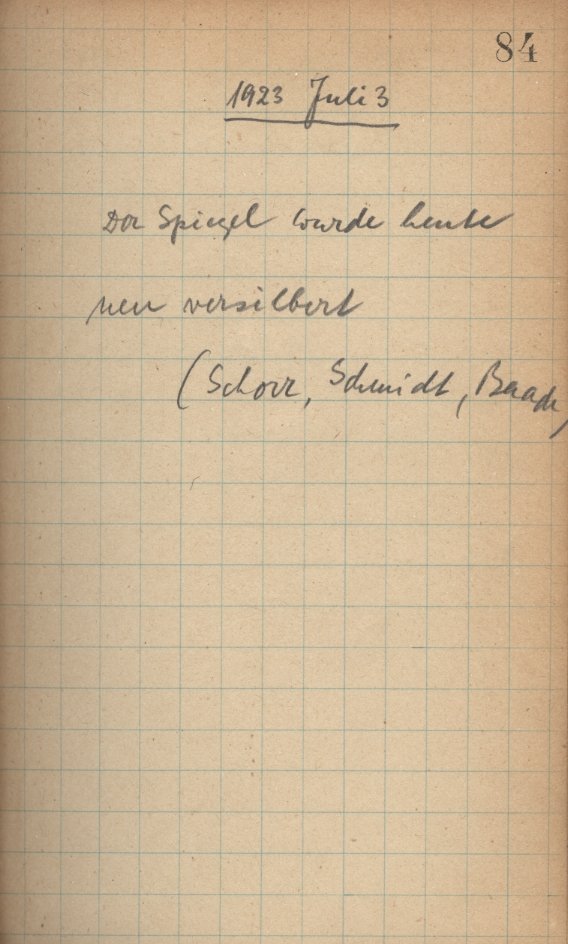 84
1923 Juli 3
Der Spiegel wurde heute
neu versilbert
(Schorr, Schmidt, Baade)